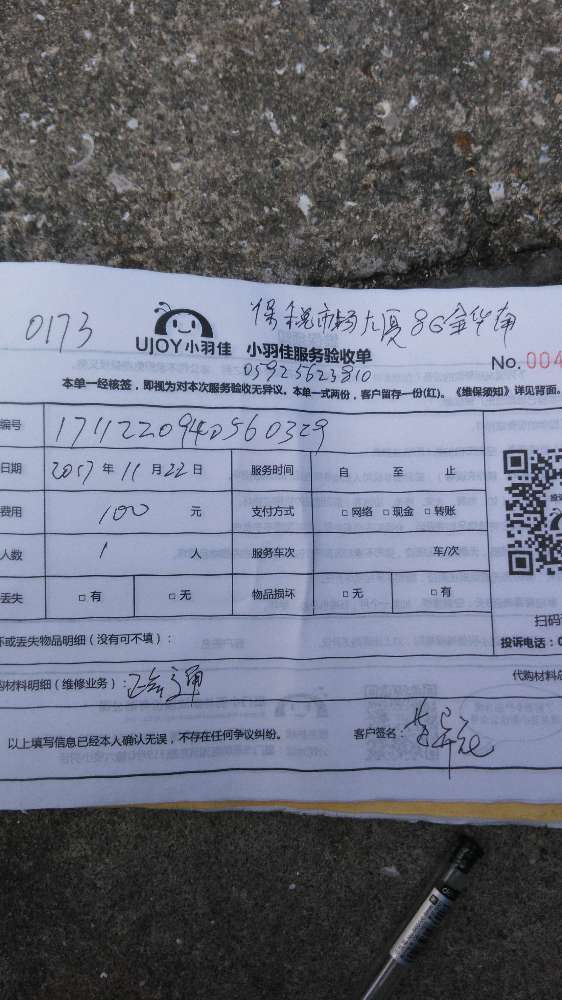 0173
保税市场大厦 8G金华南
UJOY小羽佳 小羽佳服务验收单
05925623810
No. 004
本单一经核签,即视为对本次服务验收无异议。本单一式两份,客户留存一份(红)。《维保须知》详见背面。
编号
日期 2017年 11月 22日 服务时间 自 至 止
费用 100 元 支付方式 □ 网络 □ 现金 □ 转账
人数 1 人 服务车次 车/次
丢失 □ 有 □ 无 物品损坏 □ 无 □ 有
扫码
坏或丢失物品明细(没有可不填): 投诉电话:0
购材料明细(维修业务): 代购材料总
以上填写信息已经本人确认无误,不存在任何争议纠纷。 客户签名: